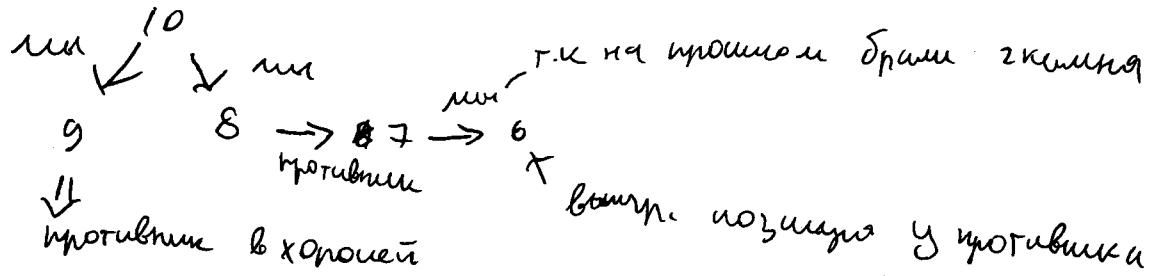 10
мы
мы
т.к на прошлом брали 2 камня
мы
9 8 7 6
противник
противник в хорошей
выигр. позиция у противника